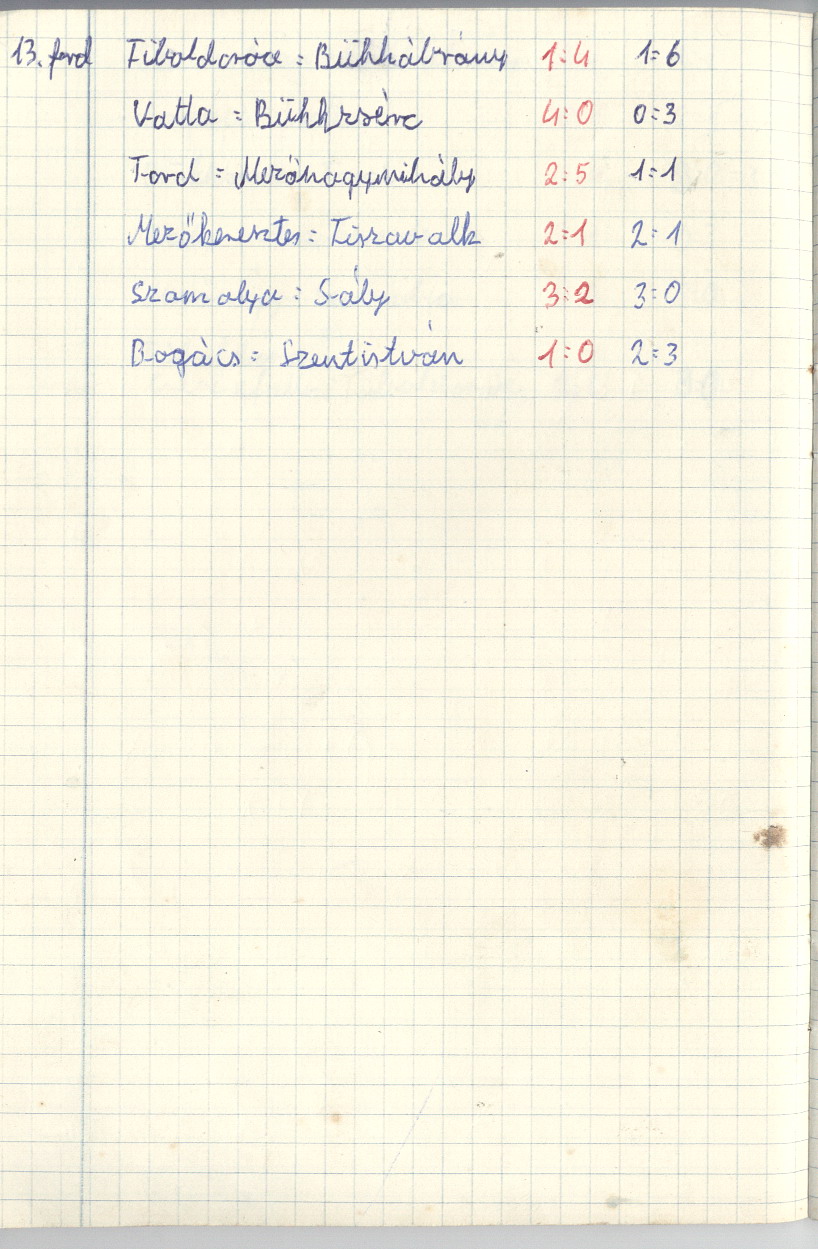 13. ford Tiboldaróc = Bükkábrány 1:4 1:6
Vatta = Bükkzsérc 4:0 0:3
Tard = Mezőnagymihály 2:5 1:1
Mezőkeresztes = Tiszavalk 2:1 2:1
Szomolya = Sály 3:2 3:0
Bogács = Szentistván 1:0 2:3